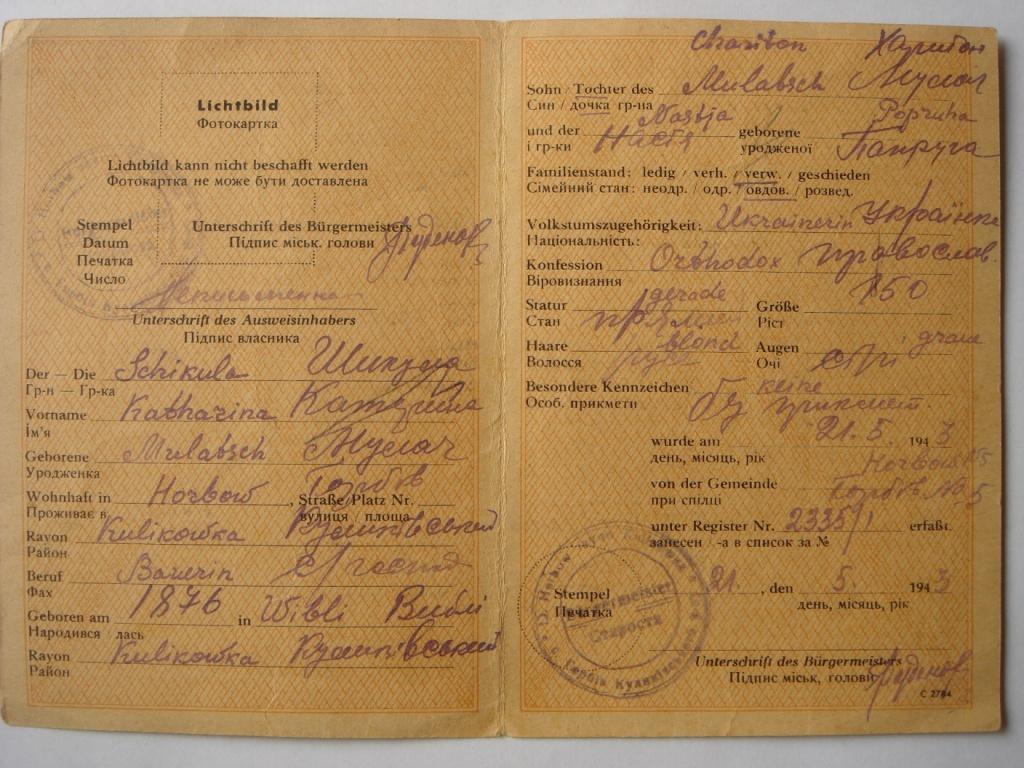 Lichtbild
Фотокартка
Lichtbild kann nicht beschafft werden
Фотокартка не може бути доставлена
Stempel
Datum
Печатка
Число
Unterschrift des Bürgermeisters
Підпис міськ. голови
Неписьменна
Unterschrift des Ausweisinhabers
Підпис власника
Der — Die Schikula Шикула
Гр-н — Гр-ка
Vorname Katharina Катерина
Ім'я
Geborene Mulabsch
Уродженка
Wohnhaft in Horbow, Straße/Platz Nr. Горбів
Проживає в вулиця / площа
Rayon Kulikowka Куликівський
Район
Beruf Bauerin с/господ
Фах
Geboren am 1876 in Wibli Виблі
Народився лась
Rayon Kulikowka Куликівський
Район
Chariton Харитон
Sohn / Tochter des Mulabsch
Син / дочка гр-на
Nastja Popruha
und der Настя geborene Попруга
і гр-ки уродженої
Familienstand: ledig / verh. / verw. / geschieden
Сімейний стан: неодр. / одр. / овдов. / розвед.
Volkstumszugehörigkeit: Ukrainerin Українка
Національність:
Konfession Orthodox православ.
Віровизнання
Statur gerade Größe 150
Стан Ріст
Haare blond Augen graue
Волосся русе Очі сірі
Besondere Kennzeichen keine
Особ. прикмети Без прикмет
wurde am 21. 5. 1943
день, місяць, рік
von der Gemeinde Horbow N5
при спілці Горбів No 5
unter Register Nr. 2335/1 erfaßt.
занесен / -а в список за №
Stempel 21, den 5. 1943
Печатка день, місяць, рік
Bürgermeister
Староста
Unterschrift des Bürgermeisters
Підпис міськ. голови
C 2784